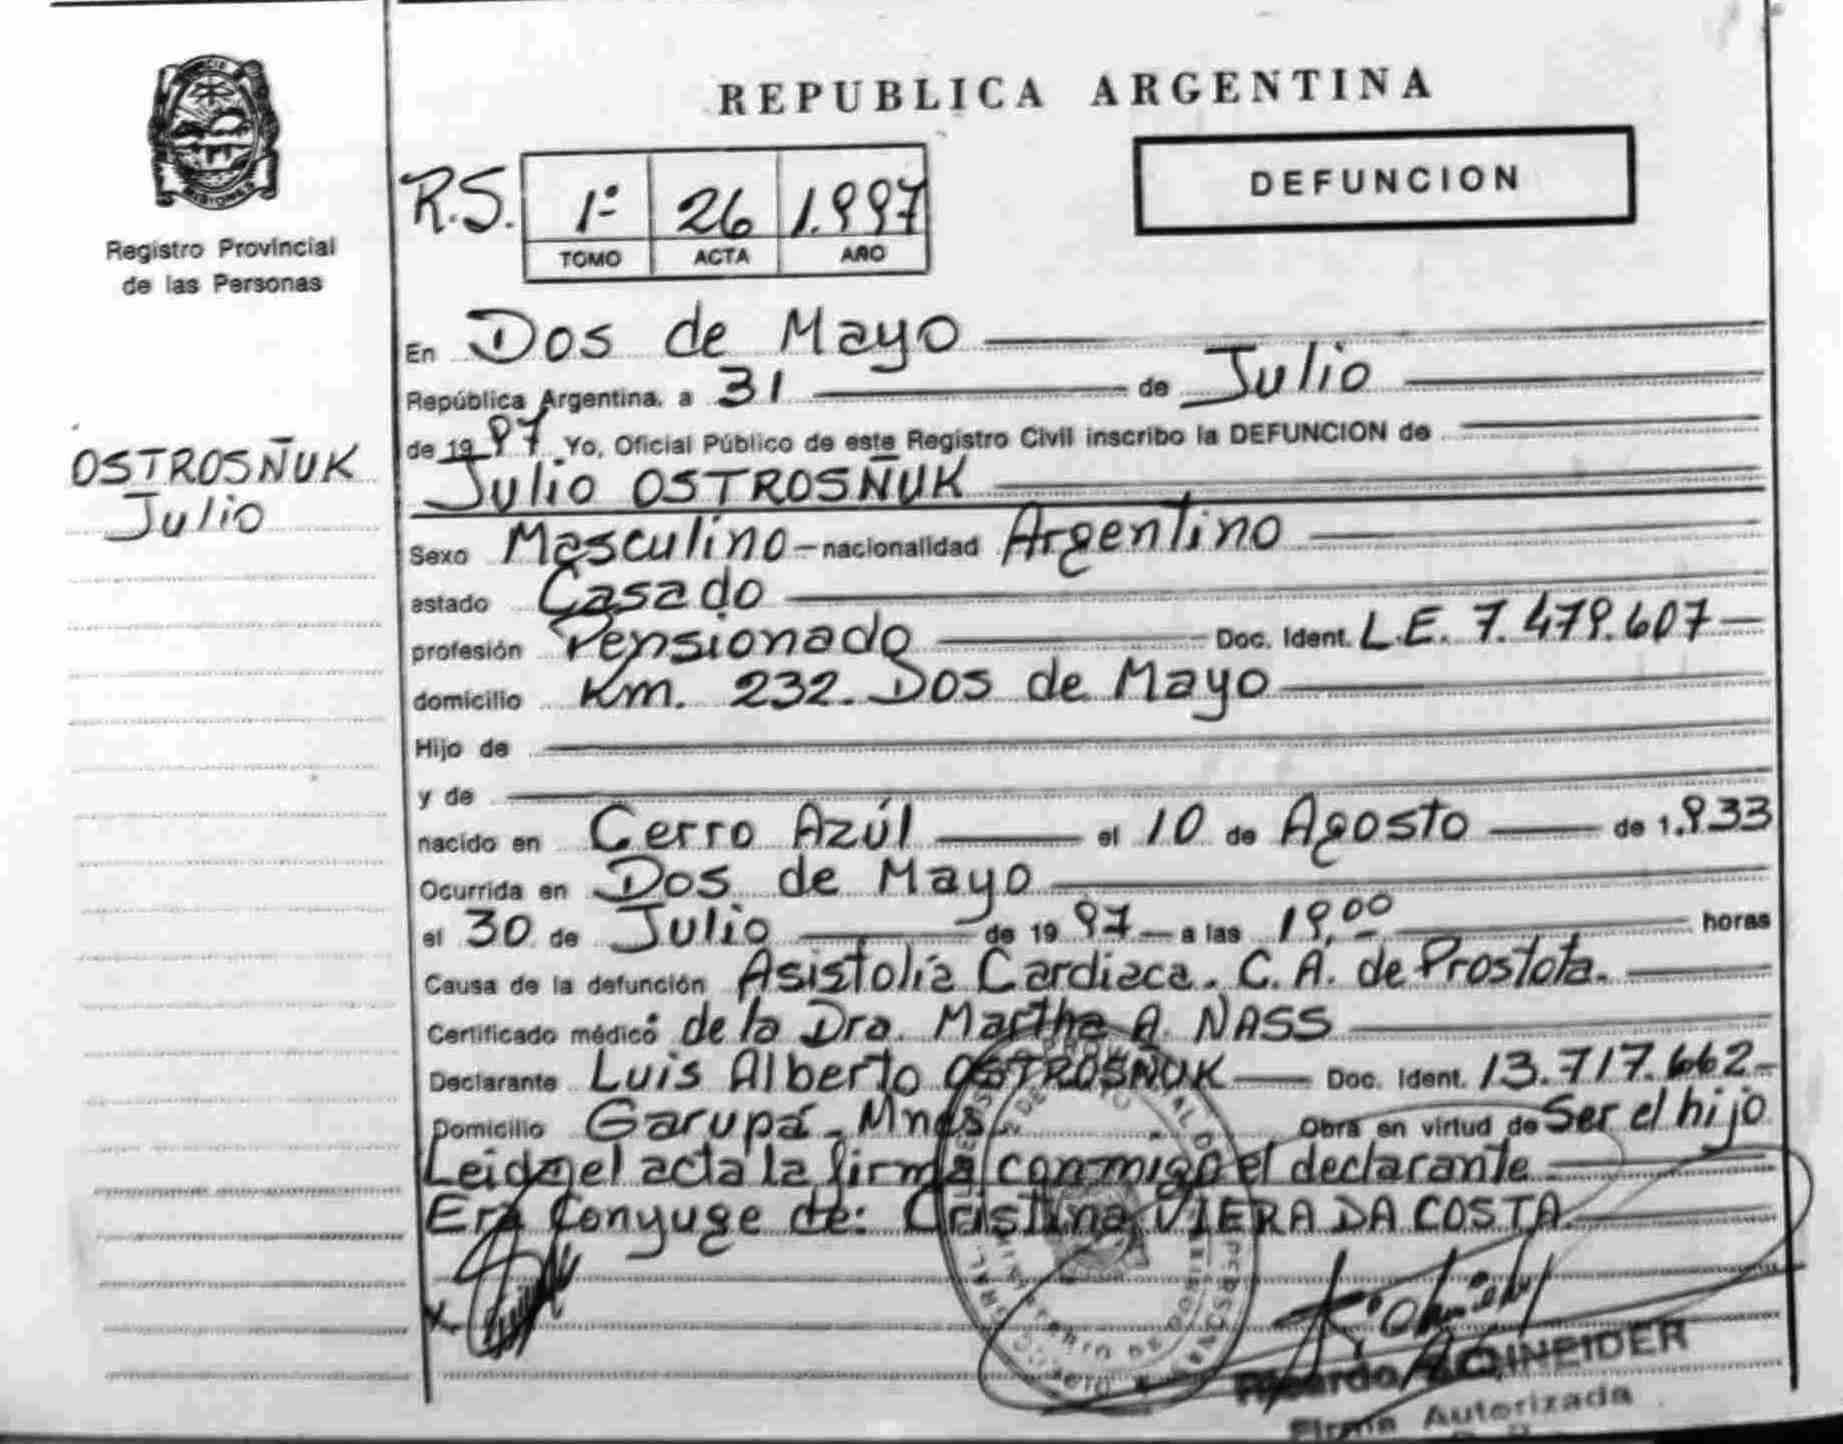 REPUBLICA ARGENTINA
DEFUNCION
R.S. 1º 26 1.997
TOMO ACTA AÑO
Registro Provincial
de las Personas
OSTROSÑUK
Julio
En Dos de Mayo
República Argentina, a 31 de Julio
de 1997 Yo, Oficial Público de este Registro Civil inscribo la DEFUNCION de
Julio OSTROSÑUK
Sexo Masculino - nacionalidad Argentino
estado Casado
profesión Pensionado Doc. Ident. L.E. 7.479.607-
domicilio Km. 232. Dos de Mayo
Hijo de
y de
nacido en Cerro Azúl el 10 de Agosto de 1.933
Ocurrida en Dos de Mayo
el 30 de Julio de 1997 a las 19,00 horas
Causa de la defunción Asistolia Cardiaca. C.A. de Prostota.
Certificado médico de la Dra. Martha A. NASS
Declarante Luis Alberto OSTROSÑUK Doc. Ident. 13.717.662-
Domicilio Garupá - Mnes. Obra en virtud de Ser el hijo
Leida el acta la firma conmigo el declarante
Era Conyuge de: Cristina VIERA DA COSTA.
Ricardo SCHNEIDER
Firma Autorizada